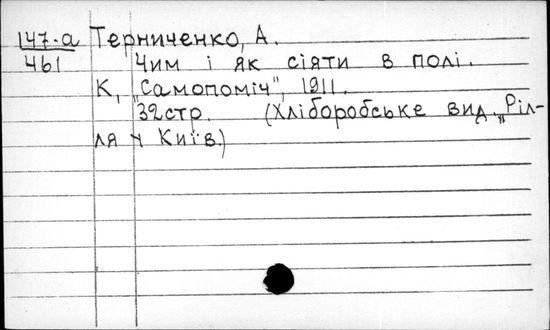 147-а Терниченко, А.
461 Чим і як сіяти в полі.
К, "Самопоміч", 1911.
32стр. (Хліборобське вид. "Ріл-
ля у Київ.)